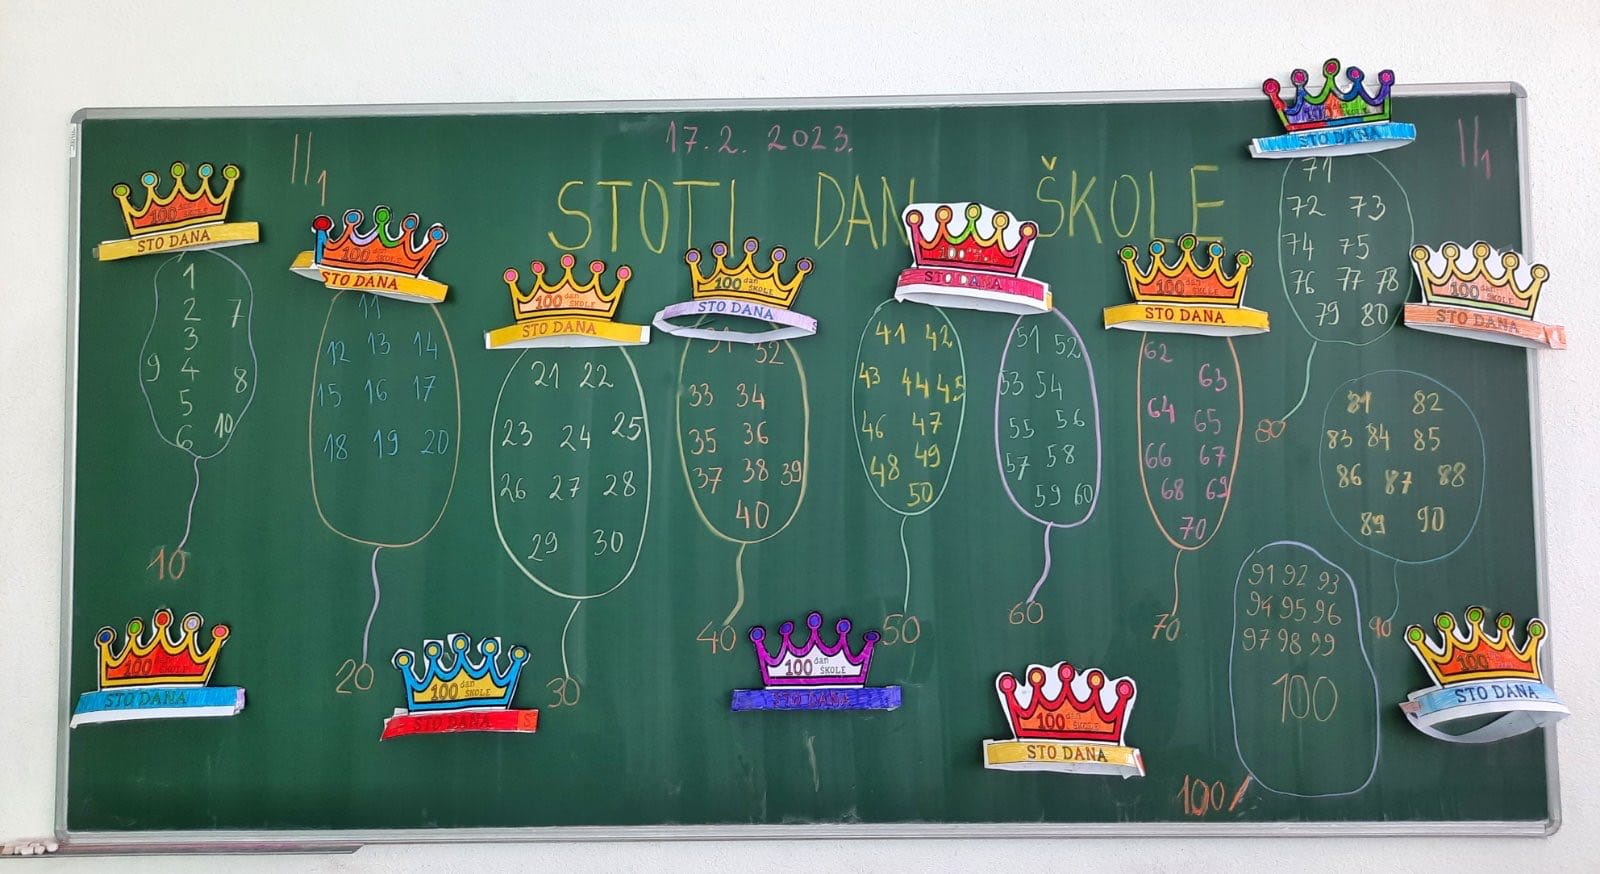 17. 2. 2023.
II1
II1
STOTI DAN ŠKOLE
100 dan ŠKOLE
STO DANA
1
2 7
3
9 4 8
5
6 10
10
100 dan ŠKOLE
STO DANA
11
12 13 14
15 16 17
18 19 20
20
100 dan ŠKOLE
STO DANA
21 22
23 24 25
26 27 28
29 30
30
100 dan ŠKOLE
STO DANA
31 32
33 34
35 36
37 38 39
40
40
100
STO DANA
41 42
43 44 45
46 47
48 49
50
50
51 52
53 54
55 56
57 58
59 60
60
100 dan ŠKOLE
STO DANA
62
63
64 65
66 67
68 69
70
70
STO DANA
71
72 73
74 75
76 77 78
79 80
80
100 dan ŠKOLE
STO DANA
81 82
83 84 85
86 87 88
89 90
90
91 92 93
94 95 96
97 98 99
100
100
100 dan ŠKOLE
STO DANA
100 dan ŠKOLE
STO DANA
100 dan ŠKOLE
STO DANA
100 dan ŠKOLE
STO DANA
100
STO DANA